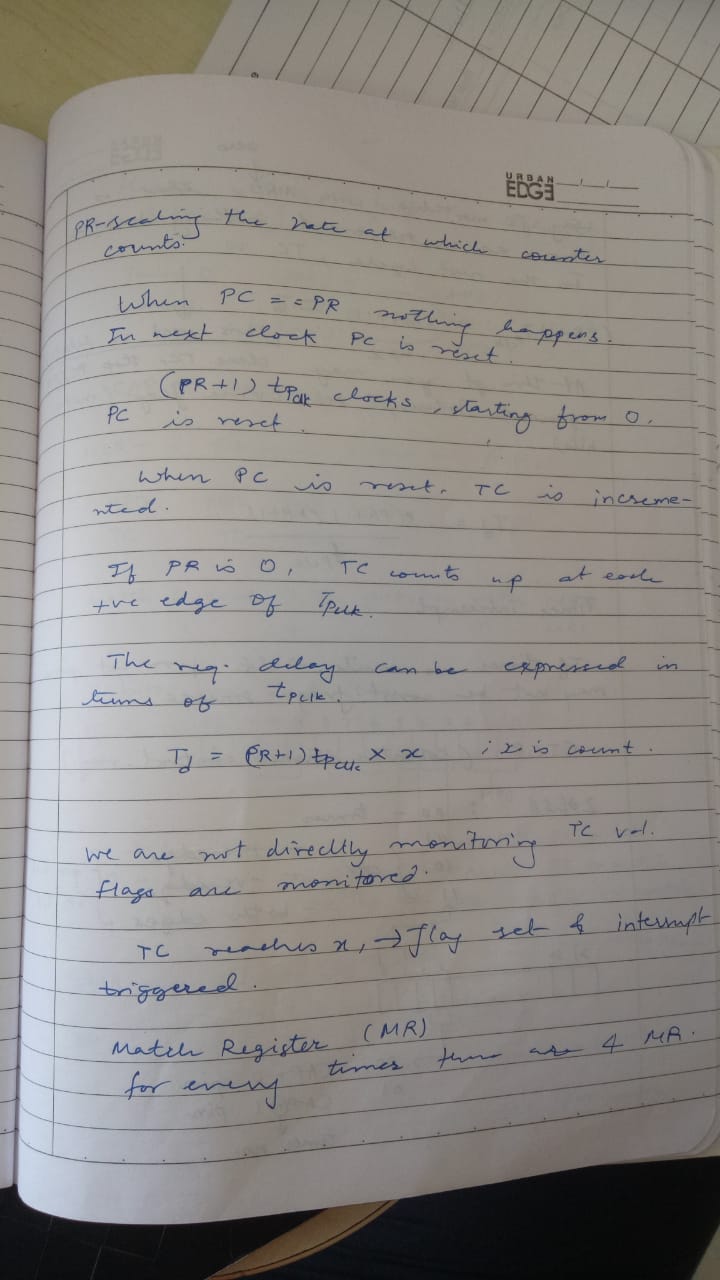 URBAN
EDGE
PR-scaling the rate at which counter
counts.
When PC == PR nothing happens.
In next clock PC is reset.
(PR+1) tpclk clocks, starting from 0,
PC is reset.
When PC is reset, TC is increme-
nted.
If PR is 0, TC counts up at each
+ve edge of Tpclk.
The req. delay can be expressed in
terms of tpclk.
Td = (PR+1) tpclk × x ; x is count.
We are not directly monitoring TC val.
flags are monitored.
TC reaches x, → flag set & interrupt
triggered.
Match Register (MR)
for every times there are 4 MR.